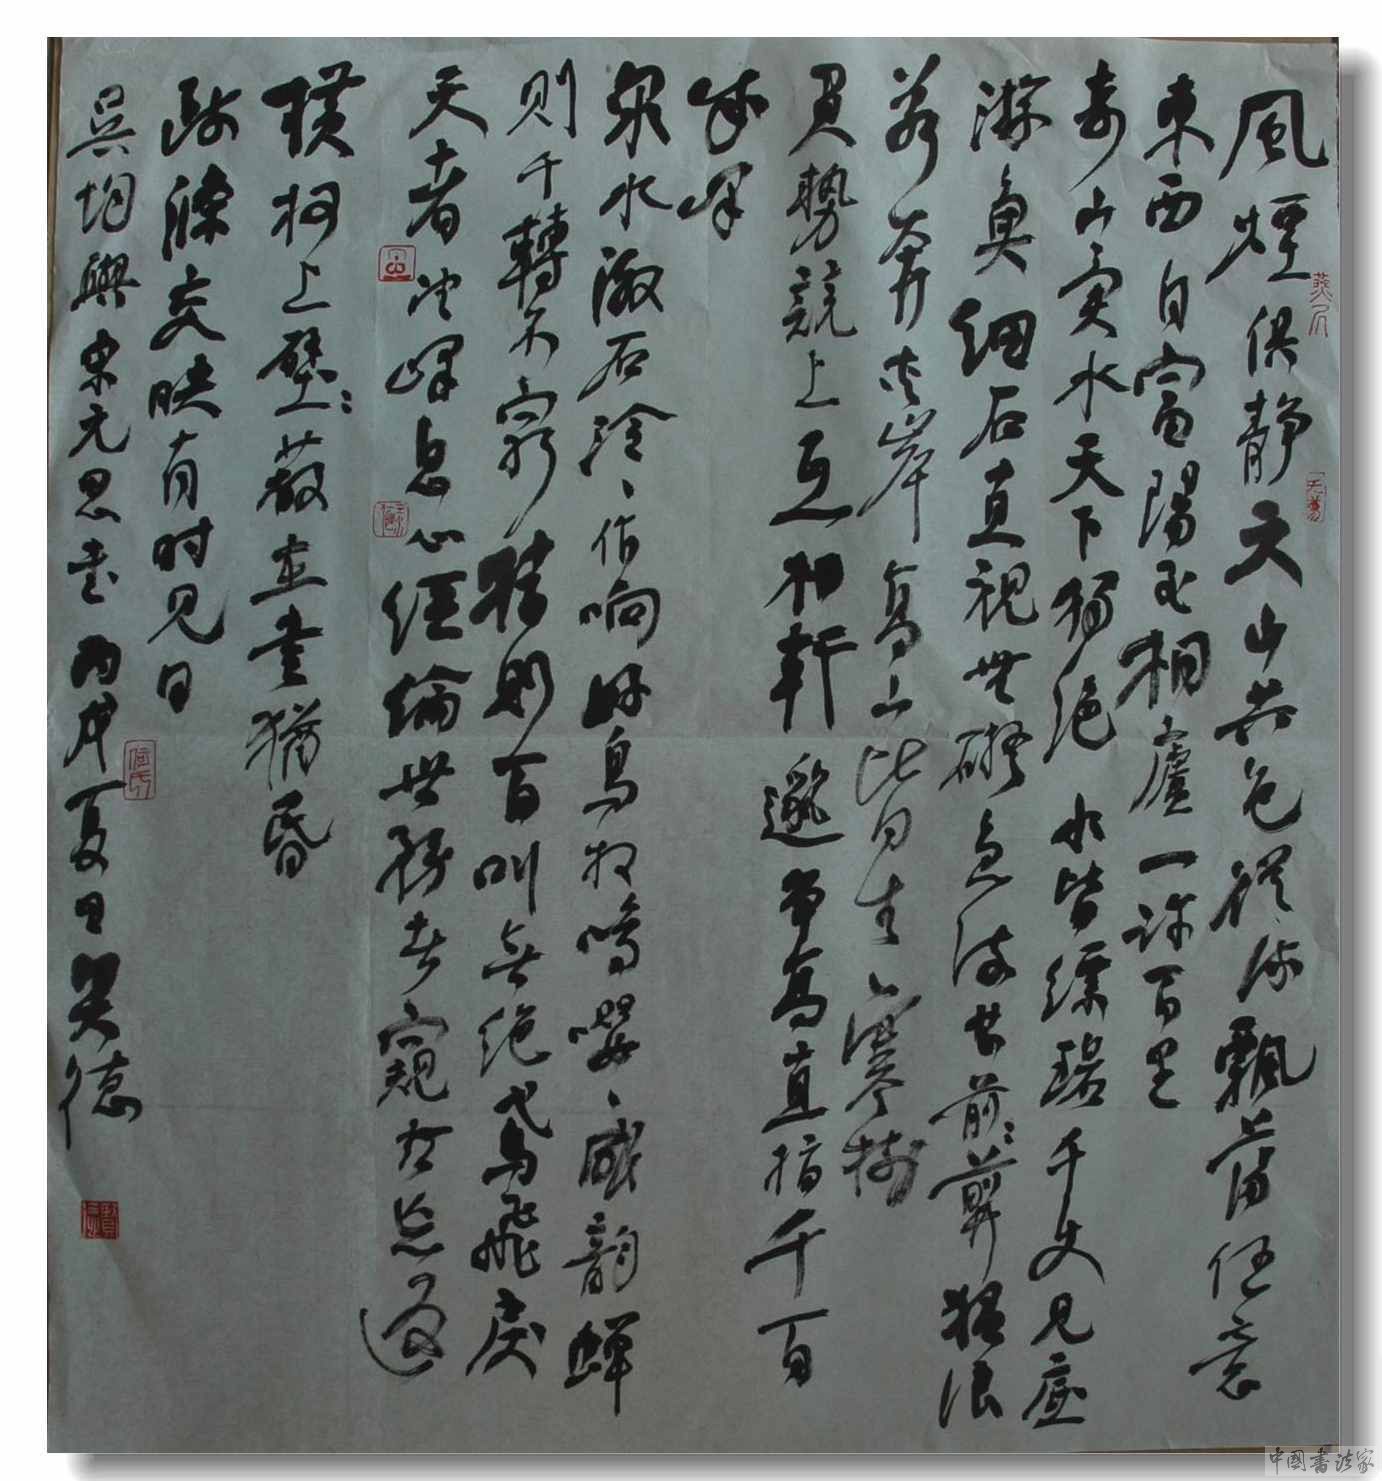 風煙俱静天山共色從流飄蕩任意
東西自富陽至桐廬一許百里
奇山異水天下獨绝水皆縹碧千丈見底
游魚细石直視無礙急湍甚前箭猛浪
若奔夹岸高山皆生寒樹
負勢競上互相軒邈争高直指千百
成峰
泉水激石泠〻作响好鳥相鳴嚶〻成韵蝉
则千轉不窮猿则百叫無绝鸢飛戾
天者望峰息心经綸世務者窺谷忘返
横柯上壁蔽在晝猶昏
疏條交映有时见日
吴均與宋元思書丙戌夏日吴德
中國書法家